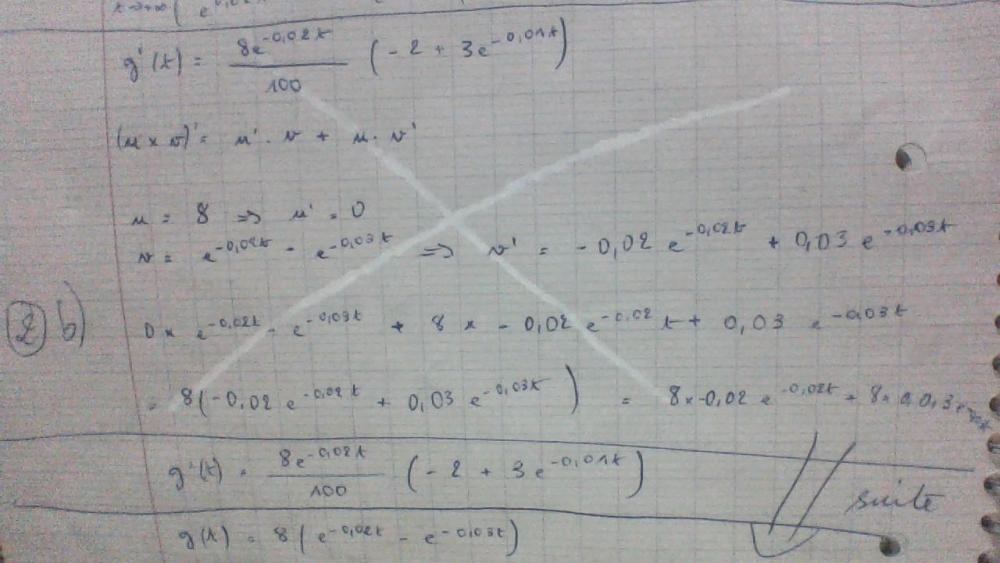 g'(t) = 8e^{-0,02t} / 100 ( - 2 + 3e^{-0,01t} )
(u × v)' = u' . v + u . v'
u = 8 => u' = 0
v = e^{-0,02t} - e^{-0,03t} => v' = - 0,02 e^{-0,02t} + 0,03 e^{-0,03t}
2 b) 0 × e^{-0,02t} - e^{-0,03t} + 8 × - 0,02 e^{-0,02} t + 0,03 e^{-0,03t}
= 8 ( -0,02 e^{-0,02t} + 0,03 e^{-0,03t} ) = 8 × -0,02 e^{-0,02t} + 8 × 0,03 e
g'(t) = 8e^{-0,02t} / 100 ( - 2 + 3e^{-0,01t} )
suite
g(t) = 8 ( e^{-0,02t} - e^{-0,03t} )